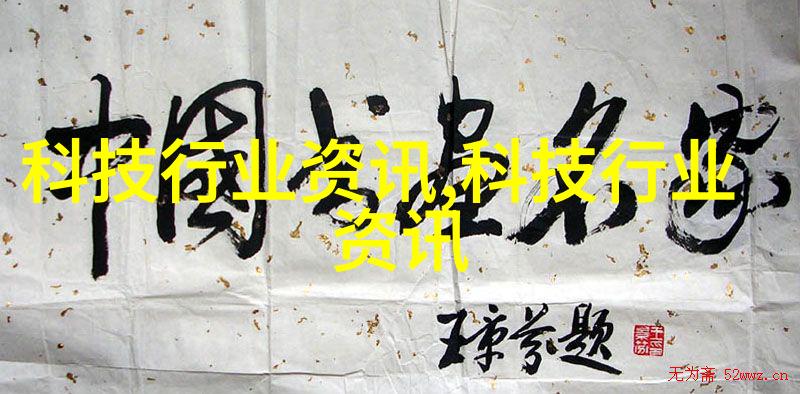 中國书画名家
科技行业资讯,科技行业
资讯
王京芬题
无为斋 52wwz.cn